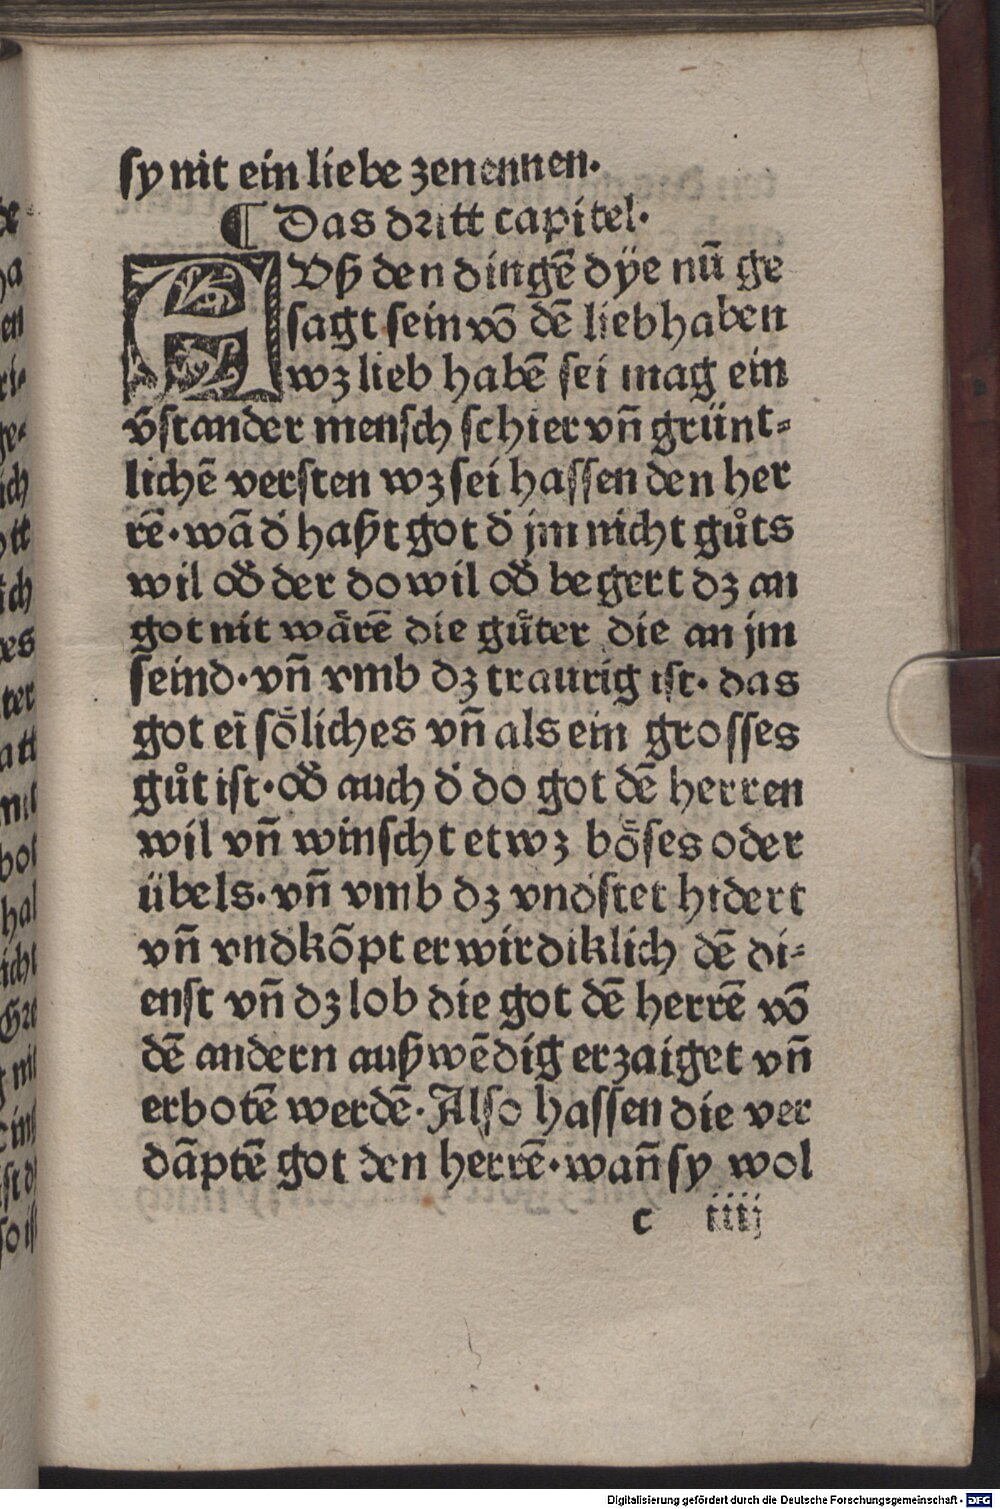 sy nit ein liebe zenennen.
¶ Das dritt capitel.
AUß den dingē dÿe nū ge
sagt sein võ dē lieb haben
wz lieb habē sei mag ein
v̄stander mensch schier vñ grünt⸗
lichē versten wz sei hassen den her
rē. wā d̓ haßt got d̓ jm nicht gůts
wil od̓ der do wil od̓ begert dz an
got nit wärē die gůter die an jm
seind. vñ vmb dz traurig ist. das
got eī söliches vñ als ein grosses
gůt ist. od̓ auch d̓ do got dē herren
wil vñ winscht etwz böses oder
übels. vñ vmb dz vnd̓stet hīdert
vñ vndkõpt erwirdiklich dē di⸗
enst vñ dz lob die got dē herrē võ
dē andern außwēdig erzaiget vñ
erbotē werdē. Also hassen die ver
dãptē got den herrē. wañ sy wol
c iiij
Digitalisierung gefördert durch die Deutsche Forschungsgemeinschaft - DFG